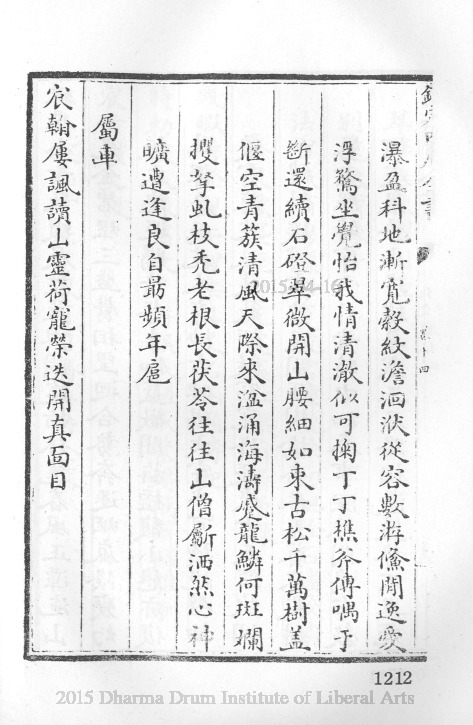 瀑盈科地漸寬縠紋澹洄洑從容數游鯈閒逸愛
浮鷖坐覺怡我情清澈似可掬丁丁樵斧傳喁于
斷還續石磴翠微開山腰細如束古松千萬樹蓋
偃空青簇清風天際來溢涌海濤蹙龍鱗何斑斕
攫拏虬枝禿老根長茯苓往往山僧斸洒然心神
曠遭逢良自朂頻年扈
屬車
宸翰屢諷讀山靈荷寵榮迭開真面目
1212
2015 Dharma Drum Institute of Liberal Arts